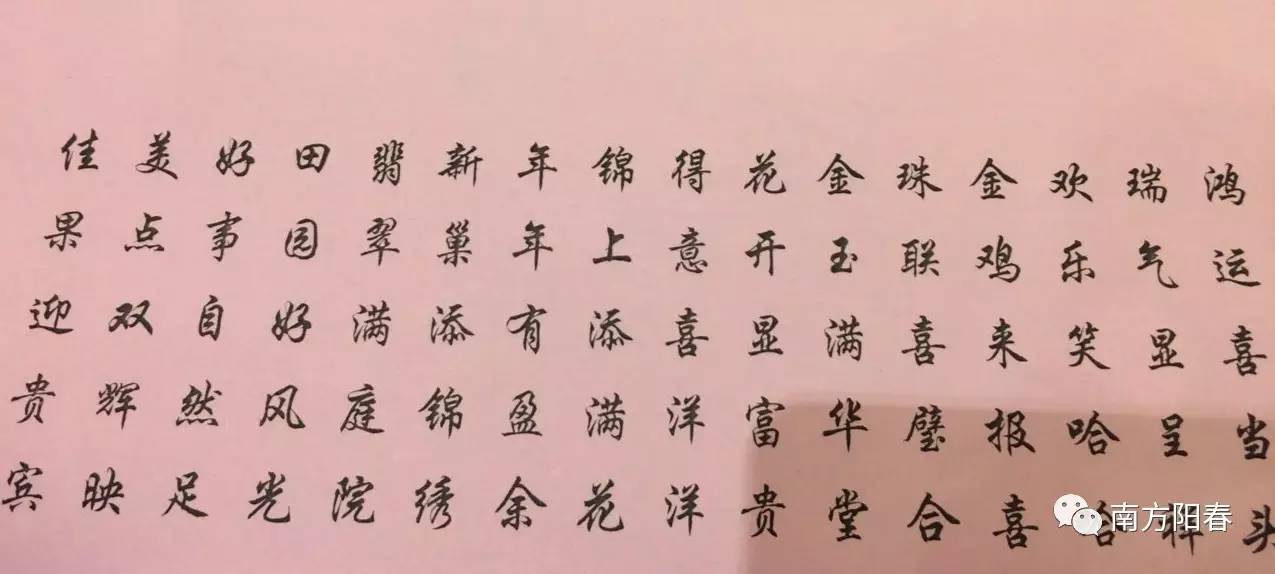 鸿运喜当头
瑞气显呈祥
欢乐笑哈哈
金鸡来报喜
珠联喜璧合
金玉满华堂
花开显富贵
得意喜洋洋
锦上添满花
年年有盈余
新巢添锦绣
翡翠满庭院
田园好风光
好事自然足
美点双辉映
佳果迎贵宾
南方阳春